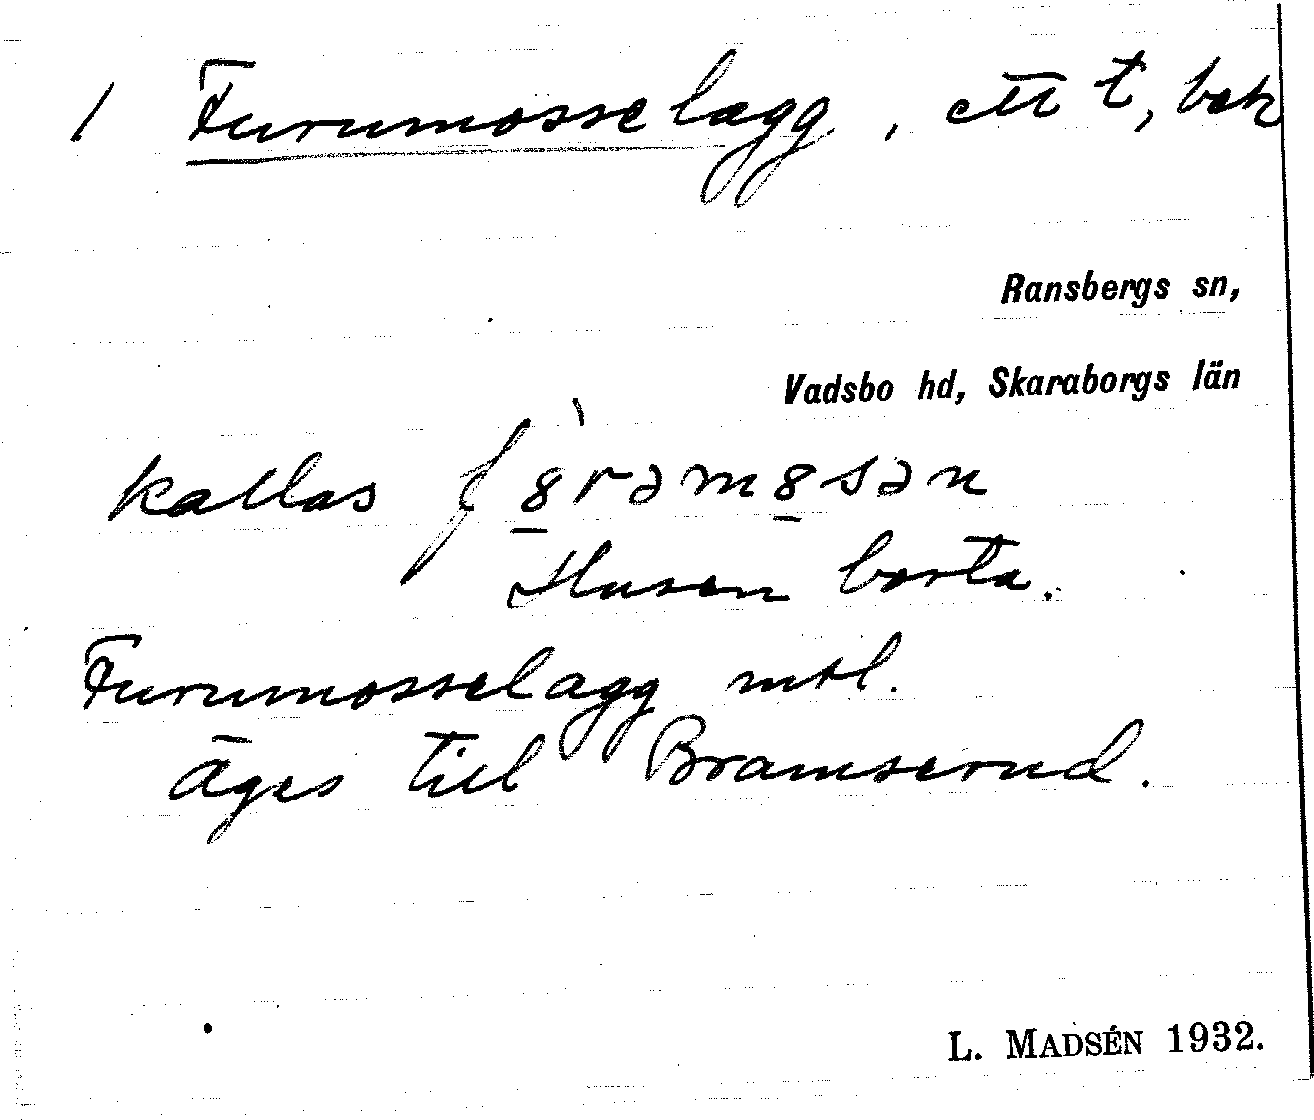 1 Furumosselagg, ett t, beb
Ransbergs sn,
Vadsbo hd, Skaraborgs län
kallas f8̲̀rəm8̲sən
Husen borta.
Furumosselagg mtl.
äges till Bramserud.
L. MADSÉN 1932.